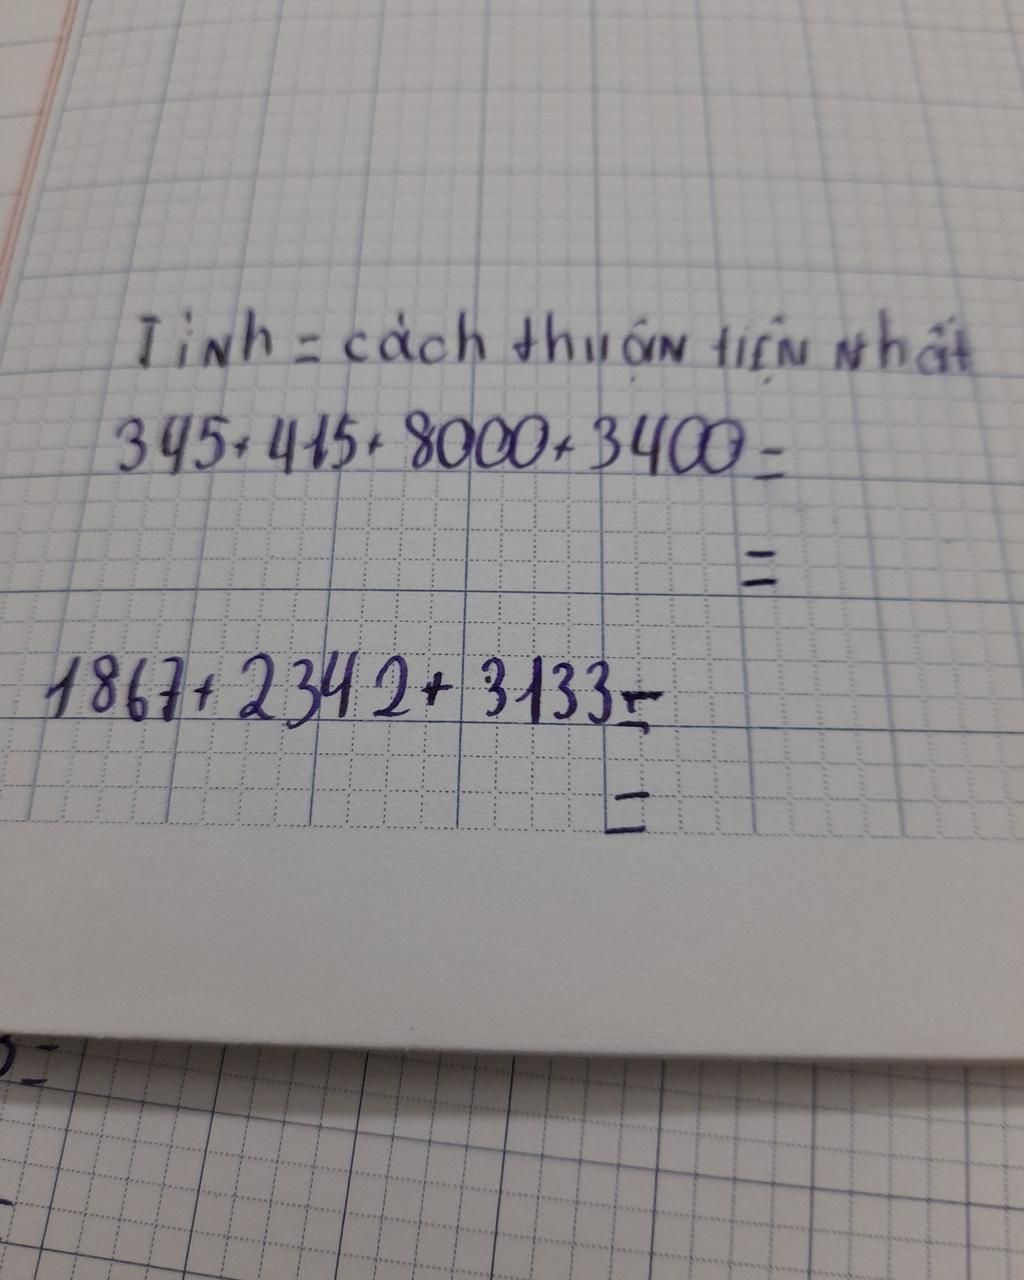 Tính = cách thuận tiện nhất
345+415+8000+3400=
=
1867+2342+3133=
=